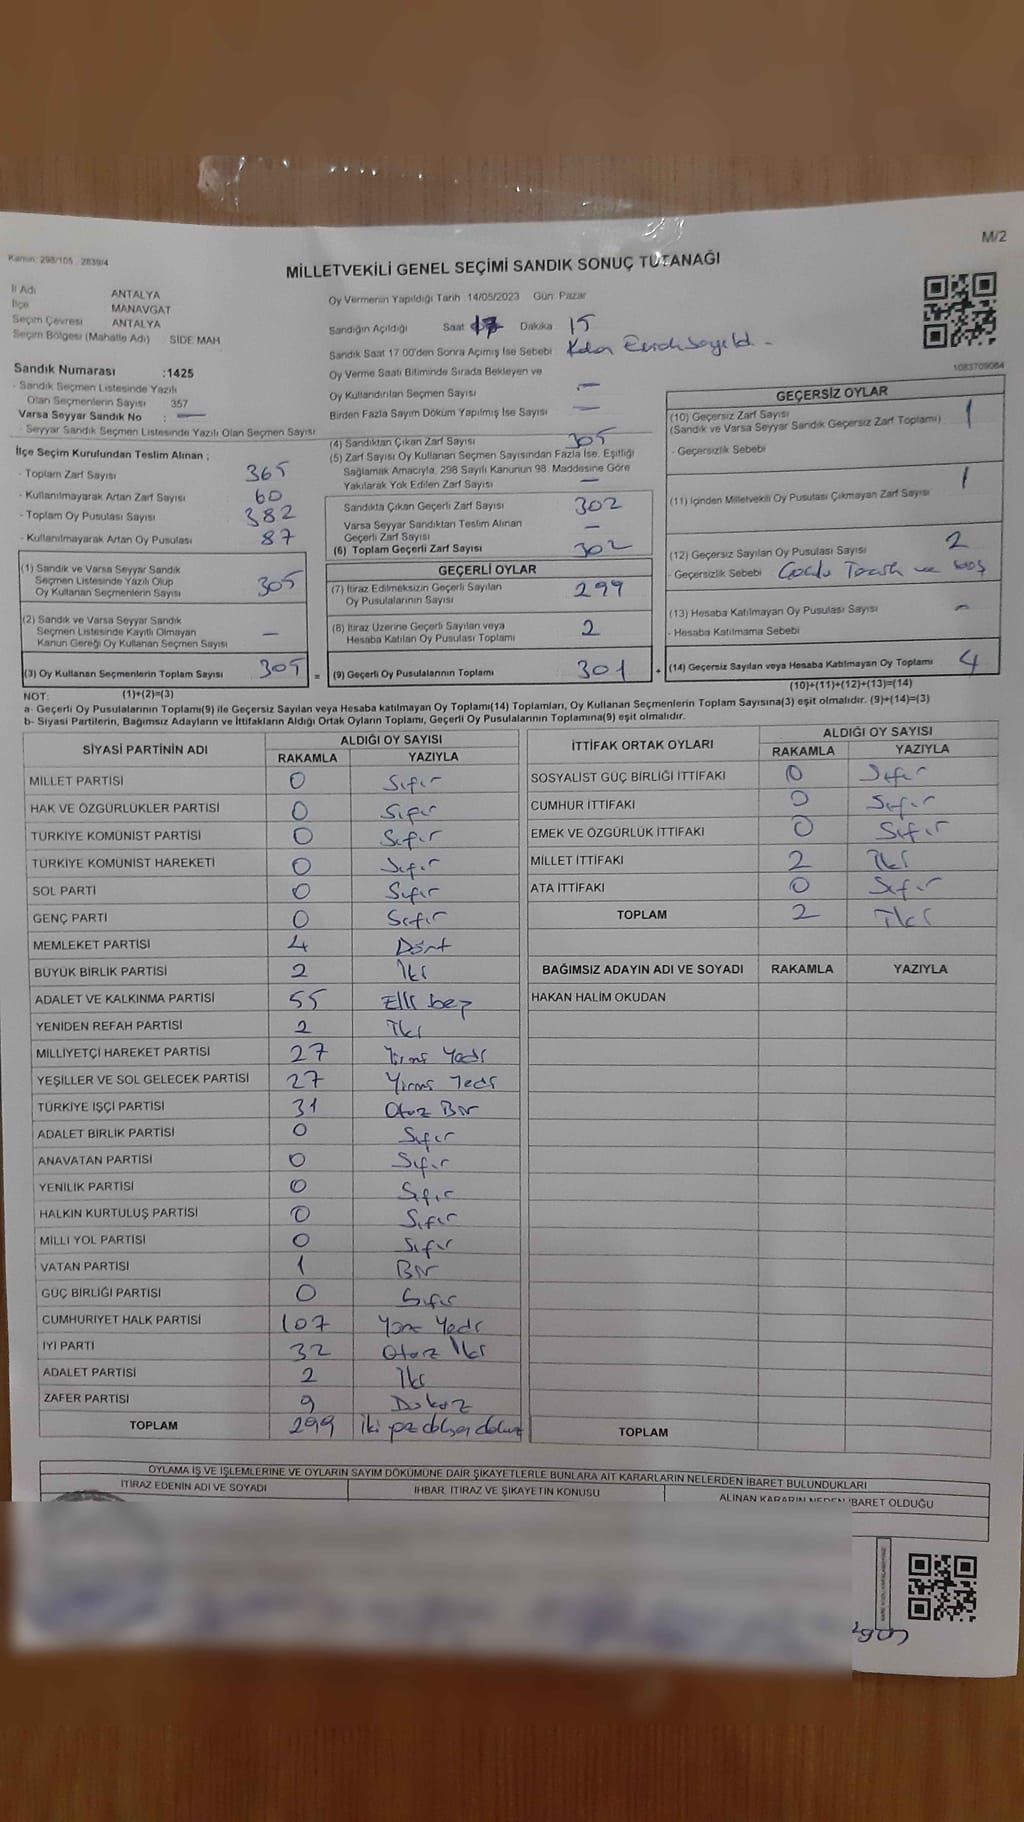 M/2
Kanun: 298/105 , 2839/4
MİLLETVEKİLİ GENEL SEÇİMİ SANDIK SONUÇ TUTANAĞI
İl Adı ANTALYA
İlçe MANAVGAT
Seçim Çevresi ANTALYA
Seçim Bölgesi (Mahalle Adı) SİDE MAH.
Oy Vermenin Yapıldığı Tarih 14/05/2023 Gün: Pazar
Sandığın Açıldığı Saat 17 Dakika 15
Sandık Saat 17:00'den Sonra Açımış İse Sebebi
Oy Verme Saati Bitiminde Sırada Bekleyen ve
Oy Kullandırılan Seçmen Sayısı —
Birden Fazla Sayım Döküm Yapılmış İse Sayısı —
1083709064
Sandık Numarası :1425
- Sandık Seçmen Listesinde Yazılı
Olan Seçmenlerin Sayısı 357
Varsa Seyyar Sandık No : —
- Seyyar Sandık Seçmen Listesinde Yazılı Olan Seçmen Sayısı
İlçe Seçim Kurulundan Teslim Alınan ;
- Toplam Zarf Sayısı 365
- Kullanılmayarak Artan Zarf Sayısı 60
- Toplam Oy Pusulası Sayısı 382
- Kullanılmayarak Artan Oy Pusulası 87
(1) Sandık ve Varsa Seyyar Sandık
Seçmen Listesinde Yazılı Olup
Oy Kullanan Seçmenlerin Sayısı 305
(2) Sandık ve Varsa Seyyar Sandık
Seçmen Listesinde Kayıtlı Olmayan
Kanun Gereği Oy Kullanan Seçmen Sayısı —
(3) Oy Kullanan Seçmenlerin Toplam Sayısı 305 =
(1)+(2)=(3)
(4) Sandıktan Çıkan Zarf Sayısı 305
(5) Zarf Sayısı Oy Kullanan Seçmen Sayısından Fazla İse, Eşitliği
Sağlamak Amacıyla, 298 Sayılı Kanunun 98. Maddesine Göre
Yakılarak Yok Edilen Zarf Sayısı —
Sandıkta Çıkan Geçerli Zarf Sayısı 302
Varsa Seyyar Sandıktan Teslim Alınan
Geçerli Zarf Sayısı —
(6) Toplam Geçerli Zarf Sayısı 302
GEÇERLİ OYLAR
(7) İtiraz Edilmeksizin Geçerli Sayılan
Oy Pusulalarının Sayısı 299
(8) İtiraz Üzerine Geçerli Sayılan veya
Hesaba Katılan Oy Pusulası Toplamı 2
(9) Geçerli Oy Pusulalarının Toplamı 301 +
GEÇERSİZ OYLAR
(10) Geçersiz Zarf Sayısı
(Sandık ve Varsa Seyyar Sandık Geçersiz Zarf Toplamı) 1
- Geçersizlik Sebebi
(11) İçinden Milletvekili Oy Pusulası Çıkmayan Zarf Sayısı 1
(12) Geçersiz Sayılan Oy Pusulası Sayısı 2
- Geçersizlik Sebebi ve boş
(13) Hesaba Katılmayan Oy Pusulası Sayısı —
- Hesaba Katılmama Sebebi
(14) Geçersiz Sayılan veya Hesaba Katılmayan Oy Toplamı 4
(10)+(11)+(12)+(13)=(14)
NOT:
a- Geçerli Oy Pusulalarının Toplamı(9) ile Geçersiz Sayılan veya Hesaba katılmayan Oy Toplamı(14) Toplamları, Oy Kullanan Seçmenlerin Toplam Sayısına(3) eşit olmalıdır. (9)+(14)=(3)
b- Siyasi Partilerin, Bağımsız Adayların ve İttifakların Aldığı Ortak Oyların Toplamı, Geçerli Oy Pusulalarının Toplamına(9) eşit olmalıdır.
SİYASİ PARTİNİN ADI ALDIĞI OY SAYISI
RAKAMLA YAZIYLA
MİLLET PARTİSİ 0 Sıfır
HAK VE ÖZGÜRLÜKLER PARTİSİ 0 Sıfır
TÜRKİYE KOMÜNİST PARTİSİ 0 Sıfır
TÜRKİYE KOMÜNİST HAREKETİ 0 Sıfır
SOL PARTİ 0 Sıfır
GENÇ PARTİ 0 Sıfır
MEMLEKET PARTİSİ 4 Dört
BÜYÜK BİRLİK PARTİSİ 2 İki
ADALET VE KALKINMA PARTİSİ 55 Elli beş
YENİDEN REFAH PARTİSİ 2 İki
MİLLİYETÇİ HAREKET PARTİSİ 27 Yirmi Yedi
YEŞİLLER VE SOL GELECEK PARTİSİ 27 Yirmi Yedi
TÜRKİYE İŞÇİ PARTİSİ 31 Otuz Bir
ADALET BİRLİK PARTİSİ 0 Sıfır
ANAVATAN PARTİSİ 0 Sıfır
YENİLİK PARTİSİ 0 Sıfır
HALKIN KURTULUŞ PARTİSİ 0 Sıfır
MİLLİ YOL PARTİSİ 0 Sıfır
VATAN PARTİSİ 1 Bir
GÜÇ BİRLİĞİ PARTİSİ 0 Sıfır
CUMHURİYET HALK PARTİSİ 107 Yüz Yedi
İYİ PARTİ 32 Otuz İki
ADALET PARTİSİ 2 İki
ZAFER PARTİSİ 9 Dokuz
TOPLAM 299 İki yüz doksan dokuz
İTTİFAK ORTAK OYLARI ALDIĞI OY SAYISI
RAKAMLA YAZIYLA
SOSYALİST GÜÇ BİRLİĞİ İTTİFAKI 0 Sıfır
CUMHUR İTTİFAKI 0 Sıfır
EMEK VE ÖZGÜRLÜK İTTİFAKI 0 Sıfır
MİLLET İTTİFAKI 2 İki
ATA İTTİFAKI 0 Sıfır
TOPLAM 2 İki
BAĞIMSIZ ADAYIN ADI VE SOYADI RAKAMLA YAZIYLA
HAKAN HALİM OKUDAN
TOPLAM
OYLAMA İŞ VE İŞLEMLERİNE VE OYLARIN SAYIM DÖKÜMÜNE DAİR ŞİKAYETLERLE BUNLARA AİT KARARLARIN NELERDEN İBARET BULUNDUKLARI
İTİRAZ EDENİN ADI VE SOYADI İHBAR, İTİRAZ VE ŞİKAYETİN KONUSU ALINAN KARARIN NEDEN İBARET OLDUĞU